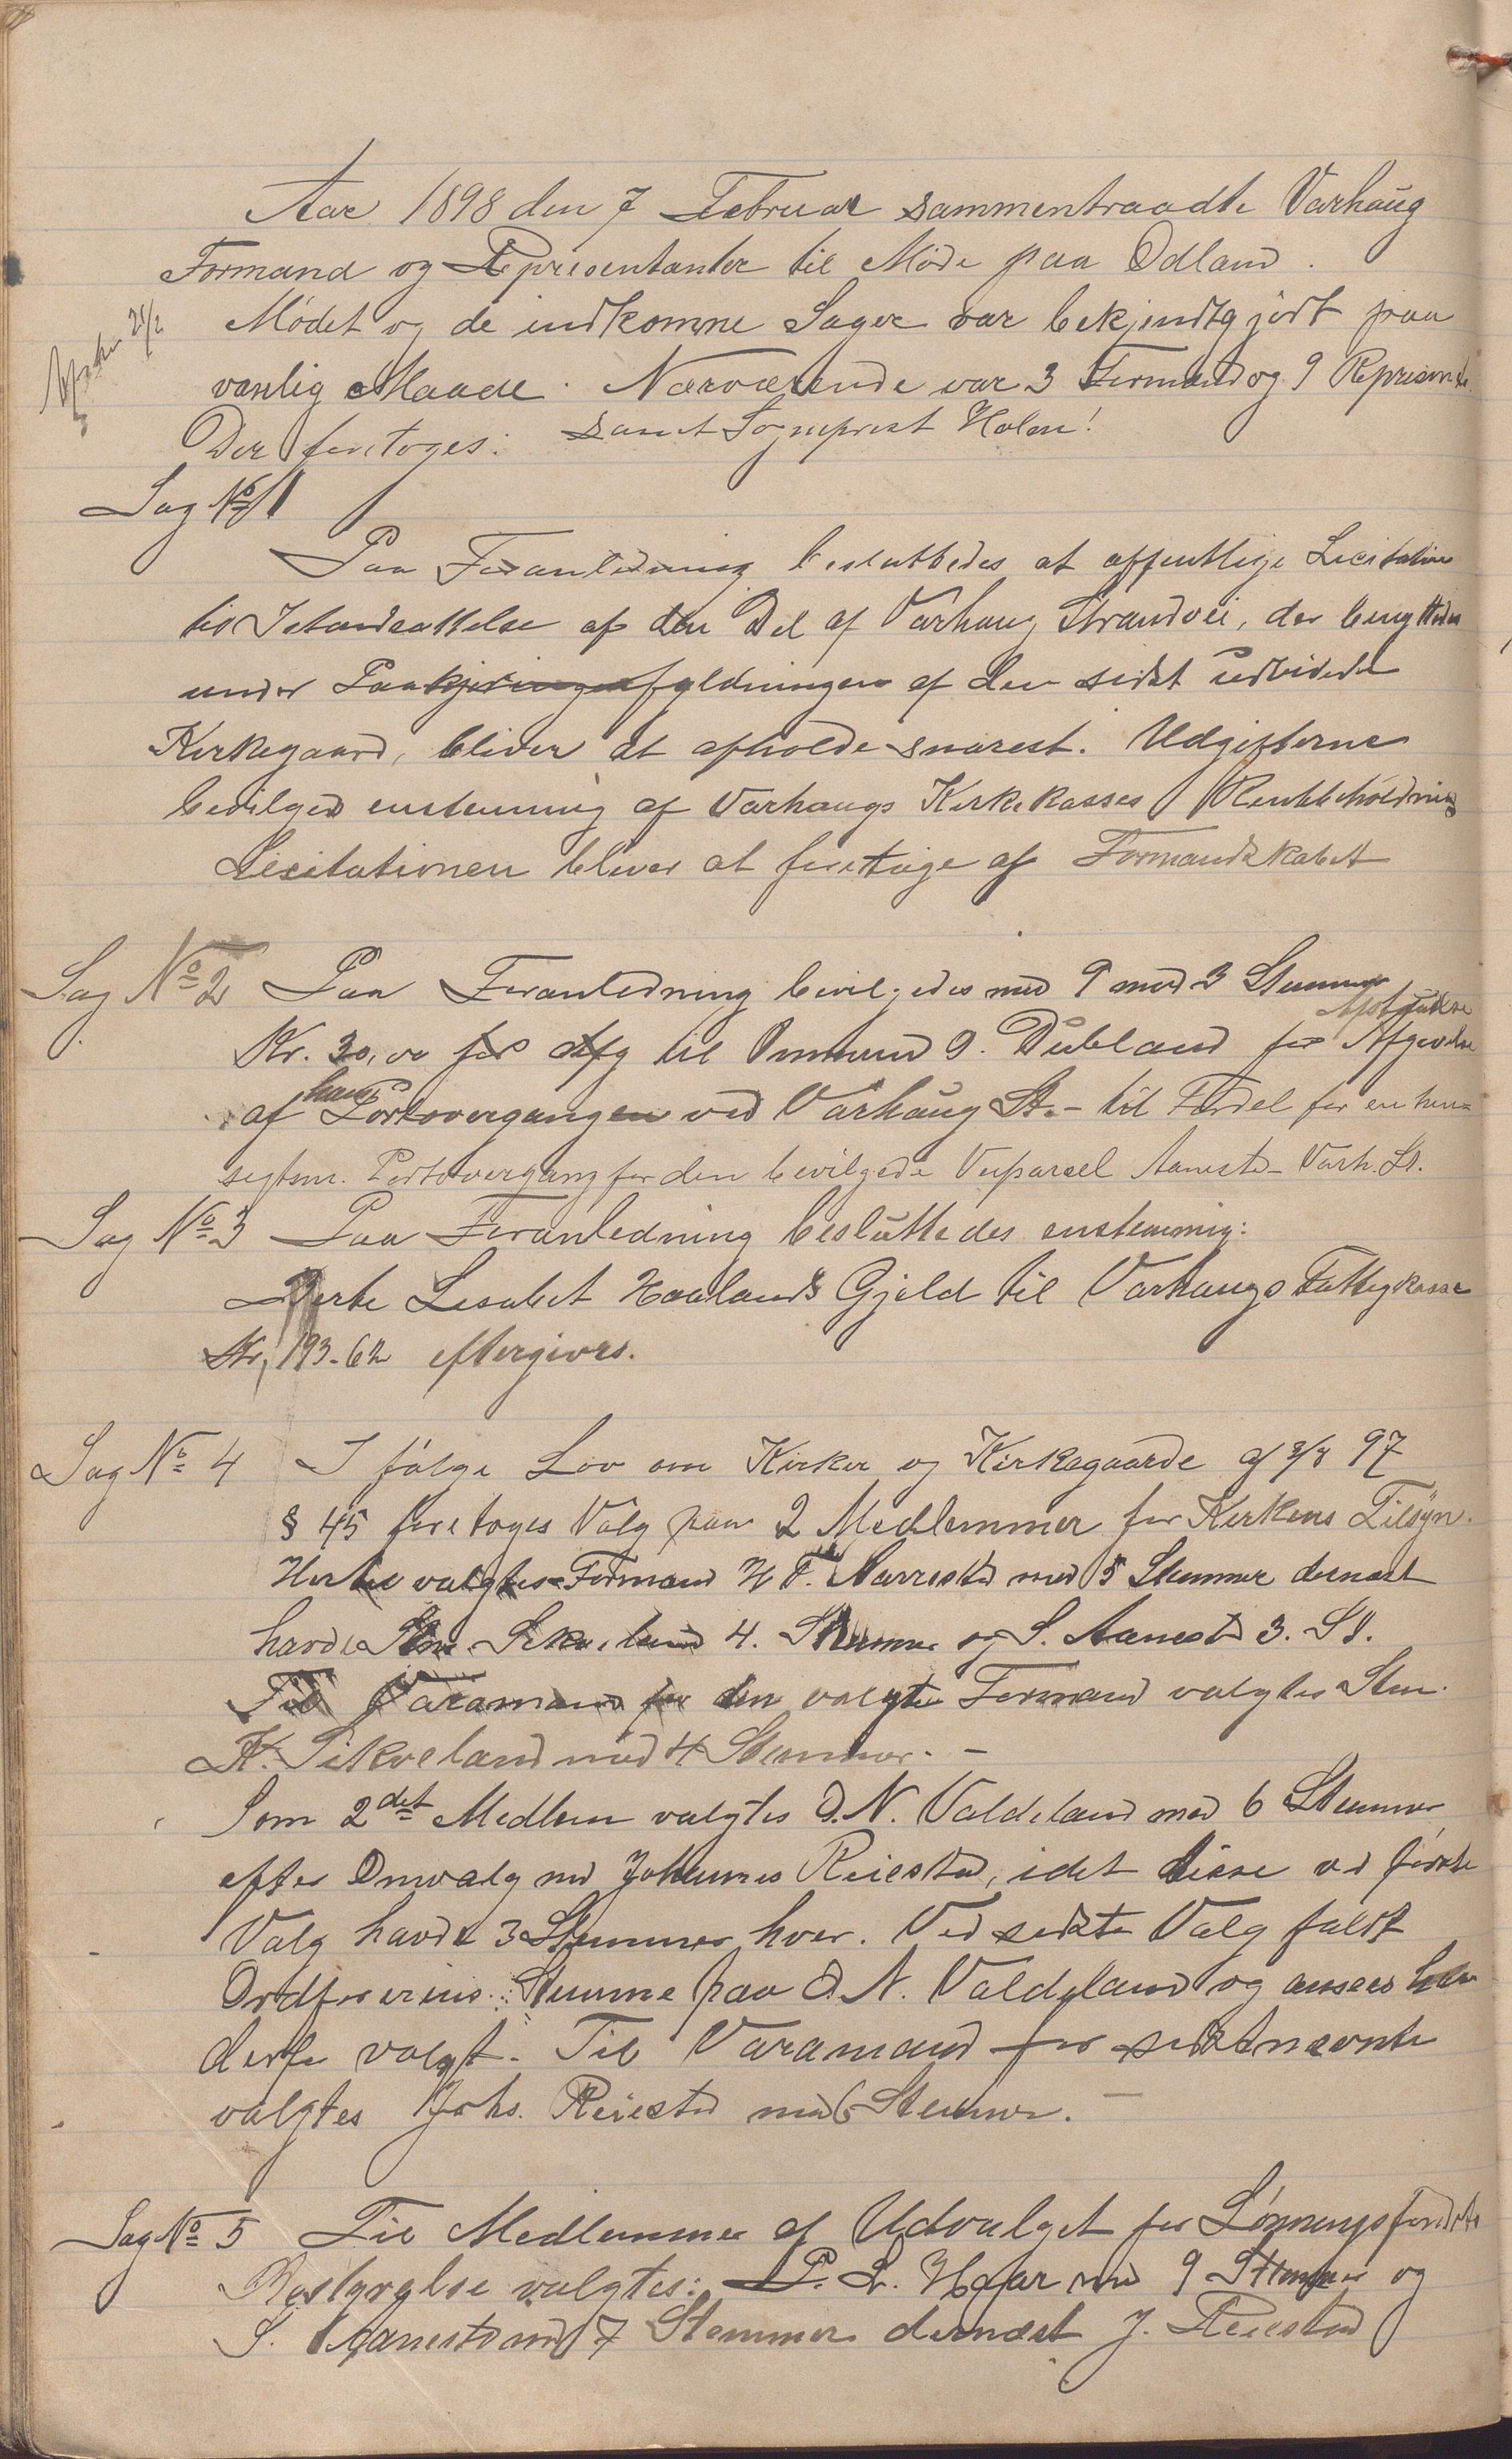 Aar 1898 den 7 Februar sammentraadte Varhaug
Formand og Repræsentanter til Møde paa Ødland.
Mødet og de indkomne Sager var bekjendtgjort paa
vanlig Maade. Nærværende var 3 Formænd og 9 Repræsen
samt Sogneprest Holen!
Der foretoges:
Sag No 1
Paa Foranledning besluttedes at offentlige Licitation
til Istandsættelse af den Del af Varhaug Strandvei, der benyttedes
under Paakjøringen fyldningen af den sidst udvidede
Kirkegaard, bliver at afholde snarest. Udgifterne
bevilges enstemmig af Varhaugs Kirkekasses Rentebeholdning
Licitationen bliver at foretage af Formandskabet
Sag No 2 Paa Foranledning bevilgedes med 9 mod 3 Stemmer
Afstaaelse
Kr. 30,00 for afg til Ommund O. Dubland for Afgivelse
hans
af Portovergangen ved Varhaug St. - til Fordel for en hen=
sigtsm. Portovergang for den bevilgede Veiparcel Aanestad - Varh. St.
Sag No 3 Paa Foranledning besluttedes enstemmig:
Berte Lisabet Haalands Gjeld til Varhaugs Fattigkasse
Kr, 193-62 eftergives.
Sag No 4 I følge Lov om Kirker og Kirkegaarde af 3/8 97
§ 45 foretoges Valg paa 2 Medlemmer for Kirkens Tilsyn.
Hertil valgtes Formand H T. Narrestad med 5 Stemmer dernæst
havde Sten Sikveland 4. Stemmer og S. Aanestad 3. St.
Til Varamand for den valgte Formand valgtes Sten.
K. Sikveland med 4 Stemmer. -
Som 2det Medlem valgtes O. N. Valdeland med 6 Stemmer
efter Omvalg med Johannes Reiestad, idet disse ved første
Valg havde 3 Stemmer hver. Ved sidste Valg faldt
Ordførerens Stemme paa O. N. Valdeland og ansees han
derfor valgt. Til Varamand for sidstnævnte
valgtes Johs. Reiestad med 6 Stemmer. -
Sag No 5 Til Medlemmer af Udvalget for Lønningsfondets
Bestyrelse valgtes: P. L. Haar med 9 Stemmer og
S. Aanestad med 7 Stemmer dernæst J. Reiestad